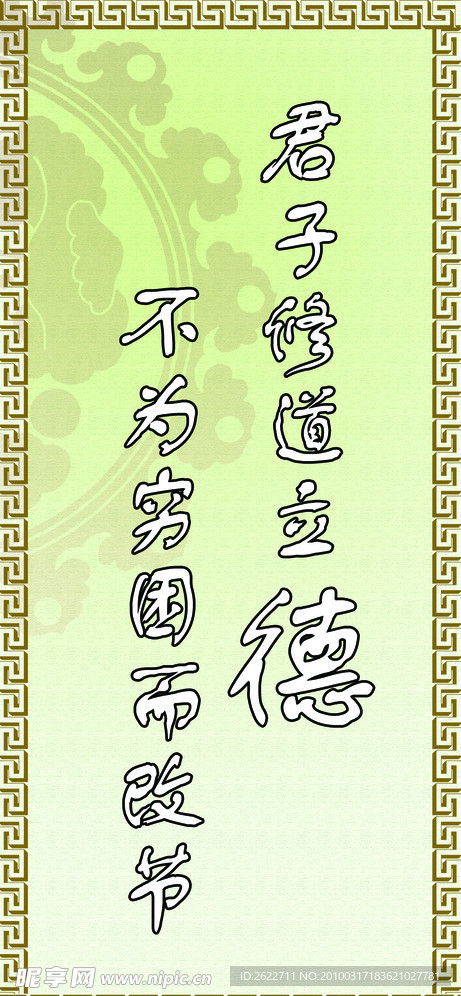 君子修道立德
不为穷困而改节
昵享网 www.nipic.cn
ID:2622711 NO:20100317183621027781